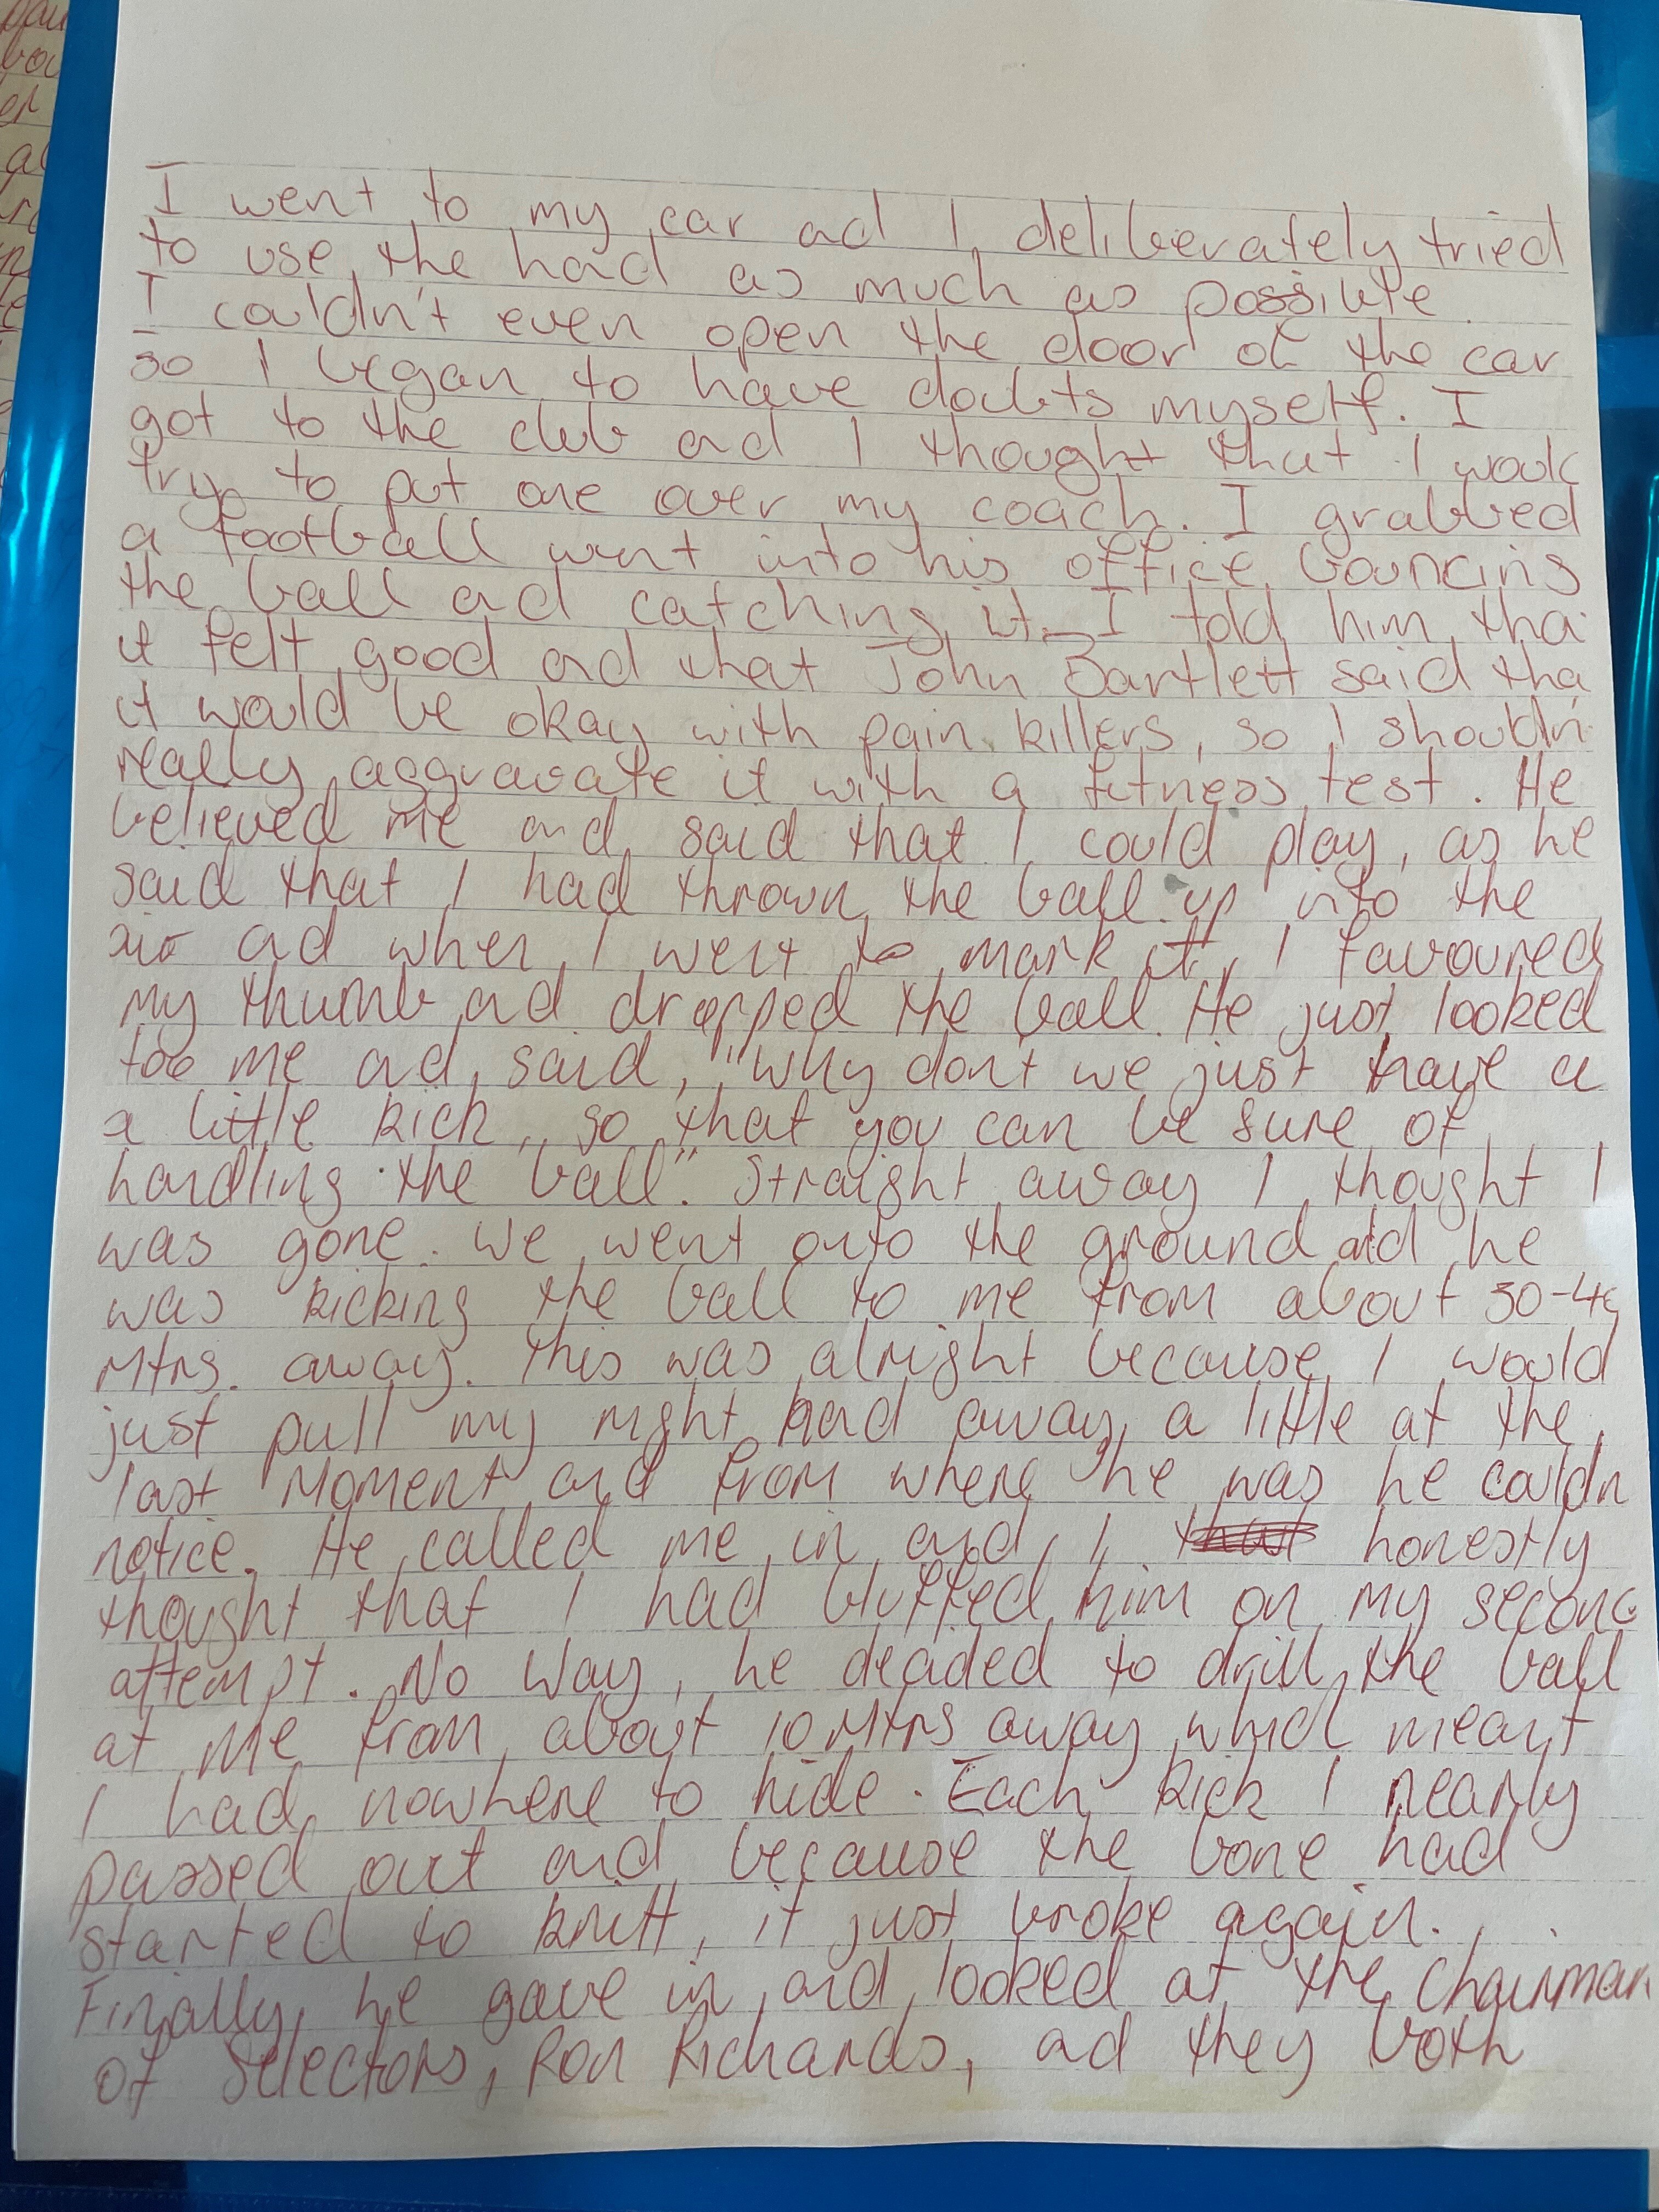 I went to my car ad I deliberately tried
to use the had as much as possible.
I couldn't even open the door of the car
so I began to have doubts myself. I
got to the club ad I thought that I would
try to put one over my coach. I grabbed
a football went into his office bouncing
the ball ad catching it. I told him tha
it felt good ad that John Bartlett said tha
it would be okay with pain killers, so I shouldn
really aggravate it with a fitness test. He
believed me and said that I could play, as he
said that I had thrown the ball up into the
air ad when I went to mark it, I favoured
my thumb ad dropped the ball. He just looked
too me ad said, "Why dont we just have a
a little kick, so that you can be sure of
handling the ball". Straight away I thought I
was gone. We went onto the ground and he
was kicking the ball to me from about 30-40
mtrs. away. This was alright because I would
just pull my right hand away a little at the
last moment and from where he was he couldn
notice. He called me in and I honestly
thought that I had bluffed him on my second
attempt. No Way, he decided to drill the ball
at me from about 10 Mtrs away which meant
I had nowhere to hide. Each kick I nearly
passed out and because the bone had
started to knitt, it just broke again.
Finally he gave in and looked at the Chairman
of Selectors, Ron Richards, ad they both